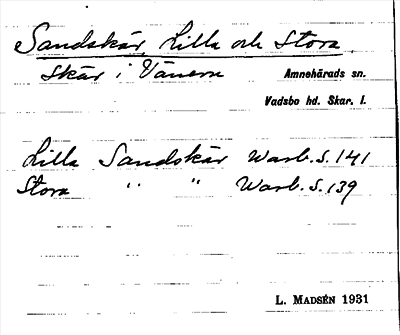 Sandskär, Lilla och Stora
Skär i Vänern Amnehärads sn.
Vadsbo hd. Skar. l.
Lilla Sandskär Warb. S. 141
Stora " " Warb. S. 139
L. MADSÉN 1931